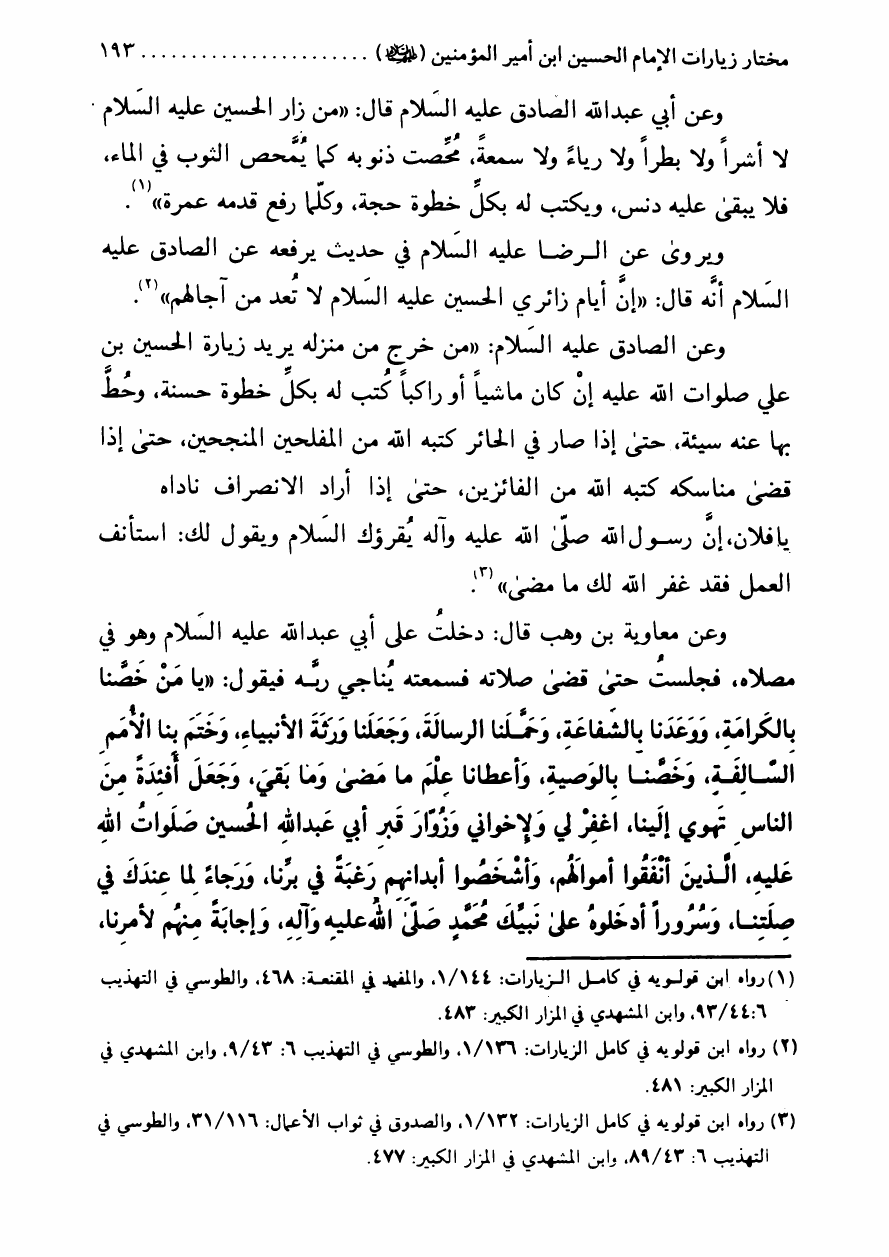 مختار زيارات الإمام الحسين ابن أمير المؤمنين (عليه السلام) ........................ ١٩٣
وعن أبي عبدالله الصادق عليه السَلام قال: «من زار الحسين عليه السَلام
لا أشراً ولا بطراً ولا رياءً ولا سمعةً، مُحِّصت ذنوبه كما يُمَّحص الثوب في الماء،
فلا يبقىٰ عليه دنس، ويكتب له بكلِّ خطوة حجة، وكلّما رفع قدمه عمرة»(١).
ويروىٰ عن الرضا عليه السَلام في حديث يرفعه عن الصادق عليه
السَلام أنَّه قال: «إنَّ أيام زائري الحسين عليه السَلام لا تُعد من آجالهم»(٢).
وعن الصادق عليه السَلام: «من خرج من منزله يريد زيارة الحسين بن
علي صلوات الله عليه إنْ كان ماشياً أو راكباً كُتب له بكلِّ خطوة حسنة، وحُطَّ
بها عنه سيئة، حتىٰ إذا صار في الحائر كتبه الله من المفلحين المنجحين، حتىٰ إذا
قضىٰ مناسكه كتبه الله من الفائزين، حتىٰ إذا أراد الانصراف ناداه
يافلان،إنَّ رسول الله صلّىٰ الله عليه وآله يُقرؤك السَلام ويقول لك: استأنف
العمل فقد غفر الله لك ما مضىٰ»(٣).
وعن معاوية بن وهب قال: دخلتُ على أبي عبدالله عليه السَلام وهو في
مصلاه، فجلستُ حتىٰ قضىٰ صلاته فسمعته يُناجي ربَّه فيقول: «يا مَنْ خَصَّنا
بالكَرامَةِ، وَوَعَدَنا بِالشَفاعَةِ، وَحَمَّلَنا الرسالَةَ، وَجَعَلَنا وَرَثَةَ الأنبياءِ، وَخَتَمَ بِنا الْأُمَمِ
السّالِفَةِ، وَخَصَّنا بِالوَصيةِ، وَأعطانا عِلْمَ ما مَضىٰ وَما بَقيَ، وَجَعَلَ أفئِدَةً مِنَ
الناسِ تَهوي إلَينا، اغفِرْ لي وَلإخواني وَزُوّارَ قَبرِ أبي عَبدِاللهِ الحُسينِ صَلَواتُ اللهِ
عَليهِ، الَّذينَ أنْفَقُوا أموالَهُم، وَأشْخَصُوا أبدانهم رَغبَةً في برِّنا، وَرَجاءً لِما عِندَكَ في
صِلَتِنا، وَسُرُوراً أدخَلوهُ علىٰ نَبيِّكَ مُحَمَّدٍ صَلّىٰ اللهُ عليهِ وَآلِهِ، وَإجابَةً مِنهُم لأمرِنا،
(١) رواه ابن قولويه في كامل الزيارات: ١/١٤٤، والمفيد في المقنعة: ٤٦٨، والطوسي في التهذيب
٦: ٩٣/٤٤، وابن المشهدي في المزار الكبير: ٤٨٣.
(٢) رواه ابن قولويه في كامل الزيارات: ١/١٣٦، والطوسي في التهذيب ٦: ٩/٤٣، وابن المشهدي في
المزار الكبير: ٤٨١.
(٣) رواه ابن قولويه في كامل الزيارات: ١/١٣٢، والصدوق في ثواب الأعمال: ٣١/١١٦، والطوسي في
التهذيب ٦: ٨٩/٤٣، وابن المشهدي في المزار الكبير: ٤٧٧.